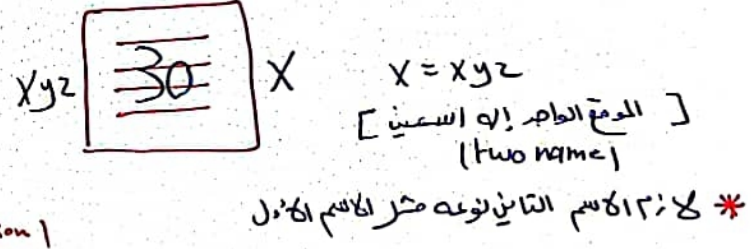 xyz 30 X
X = xyz
[ الموقع الواحد إله اسمين ]
(two name)
* لازم الاسم الثاني نوعه مثل الاسم الأول